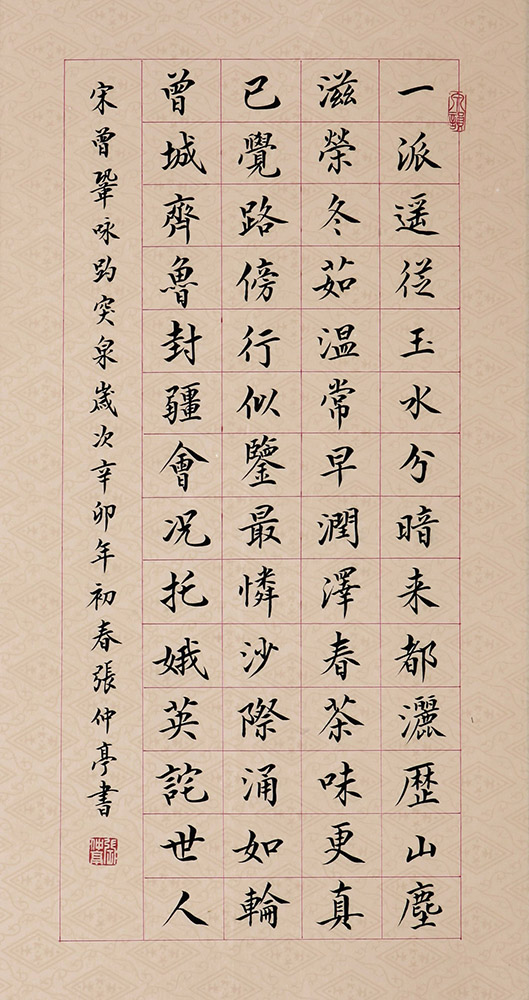 一派遥從玉水分暗来都灑歴山塵
滋榮冬茹温常早潤澤春茶味更真
已覺路傍行似鑒最憐沙際涌如輪
曾城齊魯封疆會况托娥英詫世人
宋曾鞏咏趵突泉歲次辛卯年初春張仲亭書